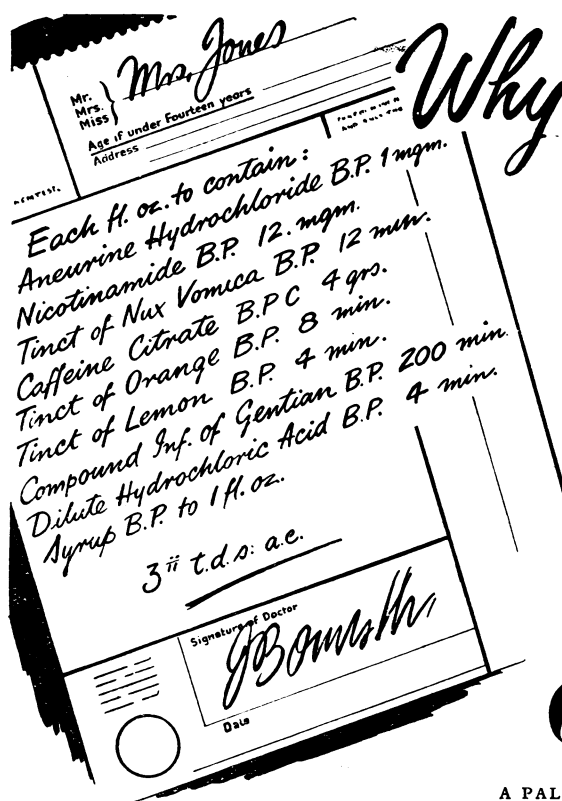 Mr.
Mrs.
Miss
Mrs. Jones
Why
Age if under Fourteen years
Address
Each fl. oz. to contain:
Aneurine Hydrochloride B.P. 1 mgm.
Nicotinamide B.P. 12. mgm.
Tinct of Nux Vomica B.P. 12 min.
Caffeine Citrate B.P C 4 grs.
Tinct of Orange B.P. 8 min.
Tinct of Lemon B.P. 4 min.
Compound Inf. of Gentian B.P. 200 min.
Dilute Hydrochloric Acid B.P. 4 min.
Syrup B.P. to 1 fl. oz.
ʒ ii t.d.s: a.c.
Signature of Doctor
Date
A PAL